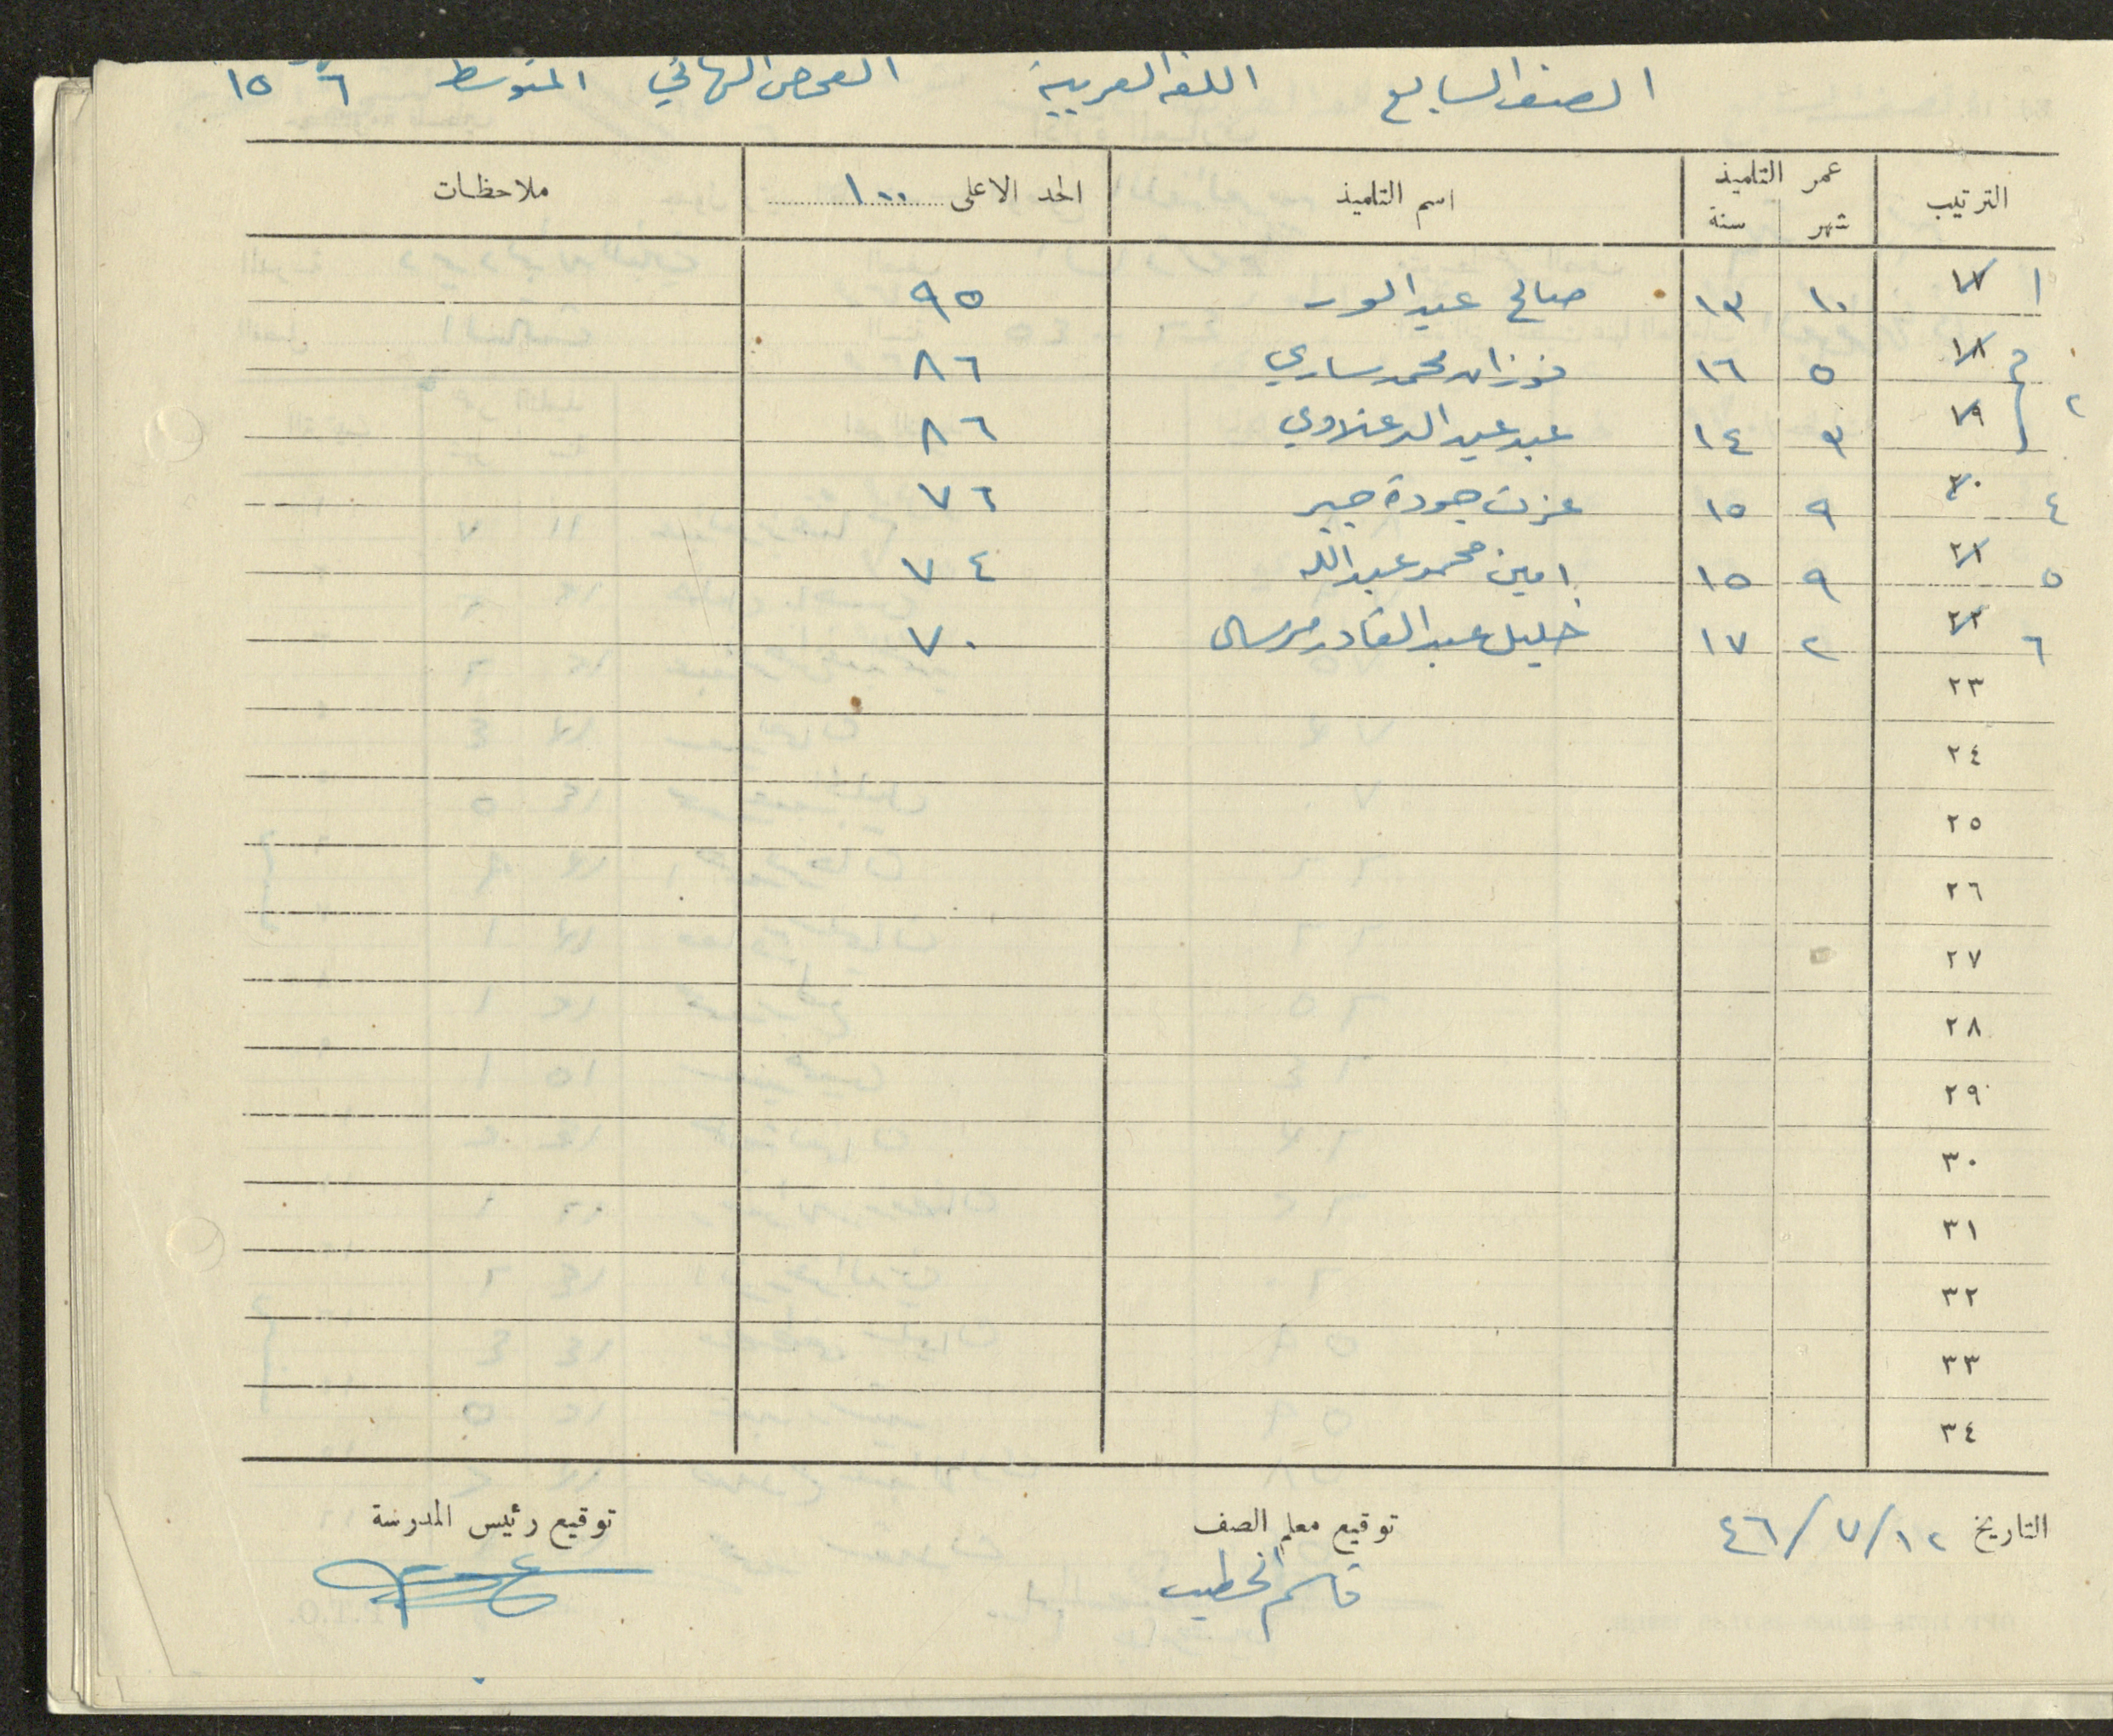 الصف السابع اللغة العربية الفحص النهائي المتوسط ٦ ١٥
الترتيب عمر التلميذ اسم التلميذ الحد الاعلى ١٠٠ ملاحظات
شهر سنة
١ ١٧ ١٠ ١٣ صالح عيد ٩٥
٢ ١٨ ٥ ١٦ فوزان محمد ساري ٨٦
١٩ ٣ ١٤ عبد عيد ٨٦
٤ ٢٠ ٩ ١٥ عزت جودة جبر ٧٦
٥ ٢١ ٩ ١٥ امين محمد عبد الله ٧٤
٦ ٢٢ ٢ ١٧ خليل عبد القادر ٧٠
٢٣
٢٤
٢٥
٢٦
٢٧
٢٨
٢٩
٣٠
٣١
٣٢
٣٣
٣٤
التاريخ ١٢/٧/٤٦ توقيع معلم الصف توقيع رئيس المدرسة
قاسم الخطيب